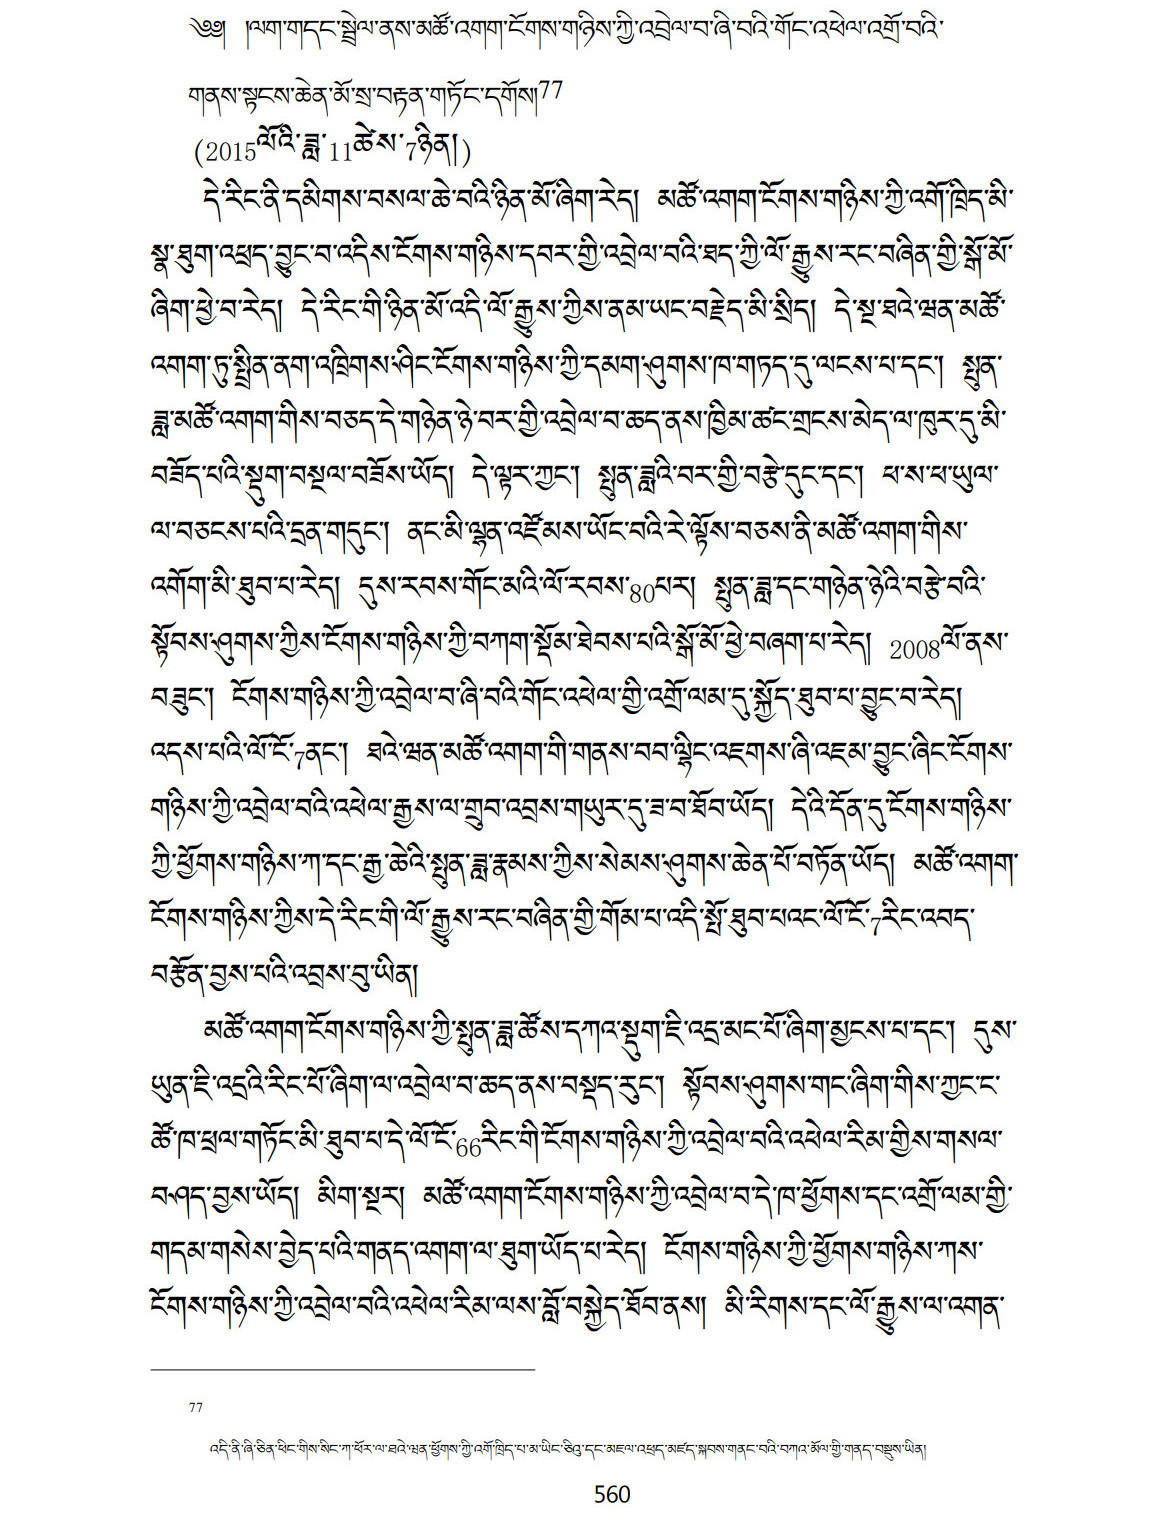 ༄༅། །ལག་གདང་སྦྲེལ་ནས་མཚོ་འགག་ངོགས་གཉིས་ཀྱི་འབྲེལ་བ་ཞི་བའི་གོང་འཕེལ་འགྲོ་བའི་
གནས་སྟངས་ཆེན་མོ་སྲ་བརྟན་གཏོང་དགོས།77
(2015ལོའི་ཟླ་11ཚེས་7ཉིན།)
དེ་རིང་ནི་དམིགས་བསལ་ཆེ་བའི་ཉིན་མོ་ཞིག་རེད། མཚོ་འགག་ངོགས་གཉིས་ཀྱི་འགོ་ཁྲིད་མི་
སྣ་ཐུག་འཕྲད་བྱུང་བ་འདིས་ངོགས་གཉིས་དབར་གྱི་འབྲེལ་བའི་ཐད་ཀྱི་ལོ་རྒྱུས་རང་བཞིན་གྱི་སྒོ་མོ་
ཞིག་ཕྱེ་བ་རེད། དེ་རིང་གི་ཉིན་མོ་འདི་ལོ་རྒྱུས་ཀྱིས་ནམ་ཡང་བརྗེད་མི་སྲིད། དེ་སྔ་ཐའེ་ཝན་མཚོ་
འགག་ཏུ་སྤྲིན་ནག་འཁྲིགས་ཤིང་ངོགས་གཉིས་ཀྱི་དམག་ཤུགས་ཁ་གཏད་དུ་ལངས་པ་དང་། སྤུན་
ཟླ་མཚོ་འགག་གིས་བཅད་དེ་གཉེན་ཉེ་བར་གྱི་འབྲེལ་བ་ཆད་ནས་ཁྱིམ་ཚང་གྲངས་མེད་ལ་ཁུར་དུ་མི་
བཟོད་པའི་སྡུག་བསྔལ་བཟོས་ཡོད། དེ་ལྟར་ཀྱང་། སྤུན་ཟླའི་བར་གྱི་བརྩེ་དུང་དང་། ཕ་ས་ཕ་ཡུལ་
ལ་བཅངས་པའི་དྲན་གདུང་། ནང་མི་ལྷན་འཛོམས་ཡོང་བའི་རེ་ལྟོས་བཅས་ནི་མཚོ་འགག་གིས་
འགོག་མི་ཐུབ་པ་རེད། དུས་རབས་གོང་མའི་ལོ་རབས་80པར། སྤུན་ཟླ་དང་གཉེན་ཉེའི་བརྩེ་བའི་
སྟོབས་ཤུགས་ཀྱིས་ངོགས་གཉིས་ཀྱི་བཀག་སྡོམ་ཐེབས་པའི་སྒོ་མོ་ཕྱེ་བཞག་པ་རེད། 2008ལོ་ནས་
བཟུང་། ངོགས་གཉིས་ཀྱི་འབྲེལ་བ་ཞི་བའི་གོང་འཕེལ་གྱི་འགྲོ་ལམ་དུ་སྐྱོད་ཐུབ་པ་བྱུང་བ་རེད།
འདས་པའི་ལོ་ངོ་7ནང་། ཐའེ་ཝན་མཚོ་འགག་གི་གནས་བབ་ལྷིང་འཇགས་ཞི་འཇམ་བྱུང་ཞིང་ངོགས་
གཉིས་ཀྱི་འབྲེལ་བའི་འཕེལ་རྒྱས་ལ་གྲུབ་འབྲས་གཡུར་དུ་ཟ་བ་ཐོབ་ཡོད། དེའི་དོན་དུ་ངོགས་གཉིས་
ཀྱི་ཕྱོགས་གཉིས་ཀ་དང་རྒྱ་ཆེའི་སྤུན་ཟླ་རྣམས་ཀྱིས་སེམས་ཤུགས་ཆེན་པོ་བཏོན་ཡོད། མཚོ་འགག་
ངོགས་གཉིས་ཀྱིས་དེ་རིང་གི་ལོ་རྒྱུས་རང་བཞིན་གྱི་གོམ་པ་འདི་སྤོ་ཐུབ་པའང་ལོ་ངོ་7རིང་འབད་
བརྩོན་བྱས་པའི་འབྲས་བུ་ཡིན།
མཚོ་འགག་ངོགས་གཉིས་ཀྱི་སྤུན་ཟླ་ཚོས་དཀའ་སྡུག་ཇི་འདྲ་མང་པོ་ཞིག་མྱངས་པ་དང་། དུས་
ཡུན་ཇི་འདྲའི་རིང་པོ་ཞིག་ལ་འབྲེལ་བ་ཆད་ནས་བསྡད་རུང་། སྟོབས་ཤུགས་གང་ཞིག་གིས་ཀྱང་ང་
ཚོ་ཁ་ཕྲལ་གཏོང་མི་ཐུབ་པ་དེ་ལོ་ངོ་66རིང་གི་ངོགས་གཉིས་ཀྱི་འབྲེལ་བའི་འཕེལ་རིམ་གྱིས་གསལ་
བཤད་བྱས་ཡོད། མིག་སྔར། མཚོ་འགག་ངོགས་གཉིས་ཀྱི་འབྲེལ་བ་དེ་ཁ་ཕྱོགས་དང་འགྲོ་ལམ་གྱི་
གདམ་གསེས་བྱེད་པའི་གནད་འགག་ལ་ཐུག་ཡོད་པ་རེད། ངོགས་གཉིས་ཀྱི་ཕྱོགས་གཉིས་ཀས་
ངོགས་གཉིས་ཀྱི་འབྲེལ་བའི་འཕེལ་རིམ་ལས་བློ་བསྐྱེད་ཐོབ་ནས། མི་རིགས་དང་ལོ་རྒྱུས་ལ་འགན་
77
འདི་ནི་ཞི་ཅིན་ཕིང་གིས་སིང་ཀ་ཕོར་ལ་ཐའེ་ཝན་ཕྱོགས་ཀྱི་འགོ་ཁྲིད་པ་མ་ཡིང་ཅིའུ་དང་མཇལ་འཕྲད་མཛད་སྐབས་གནང་བའི་བཀའ་མོལ་གྱི་གནད་བསྡུས་ཡིན།
560